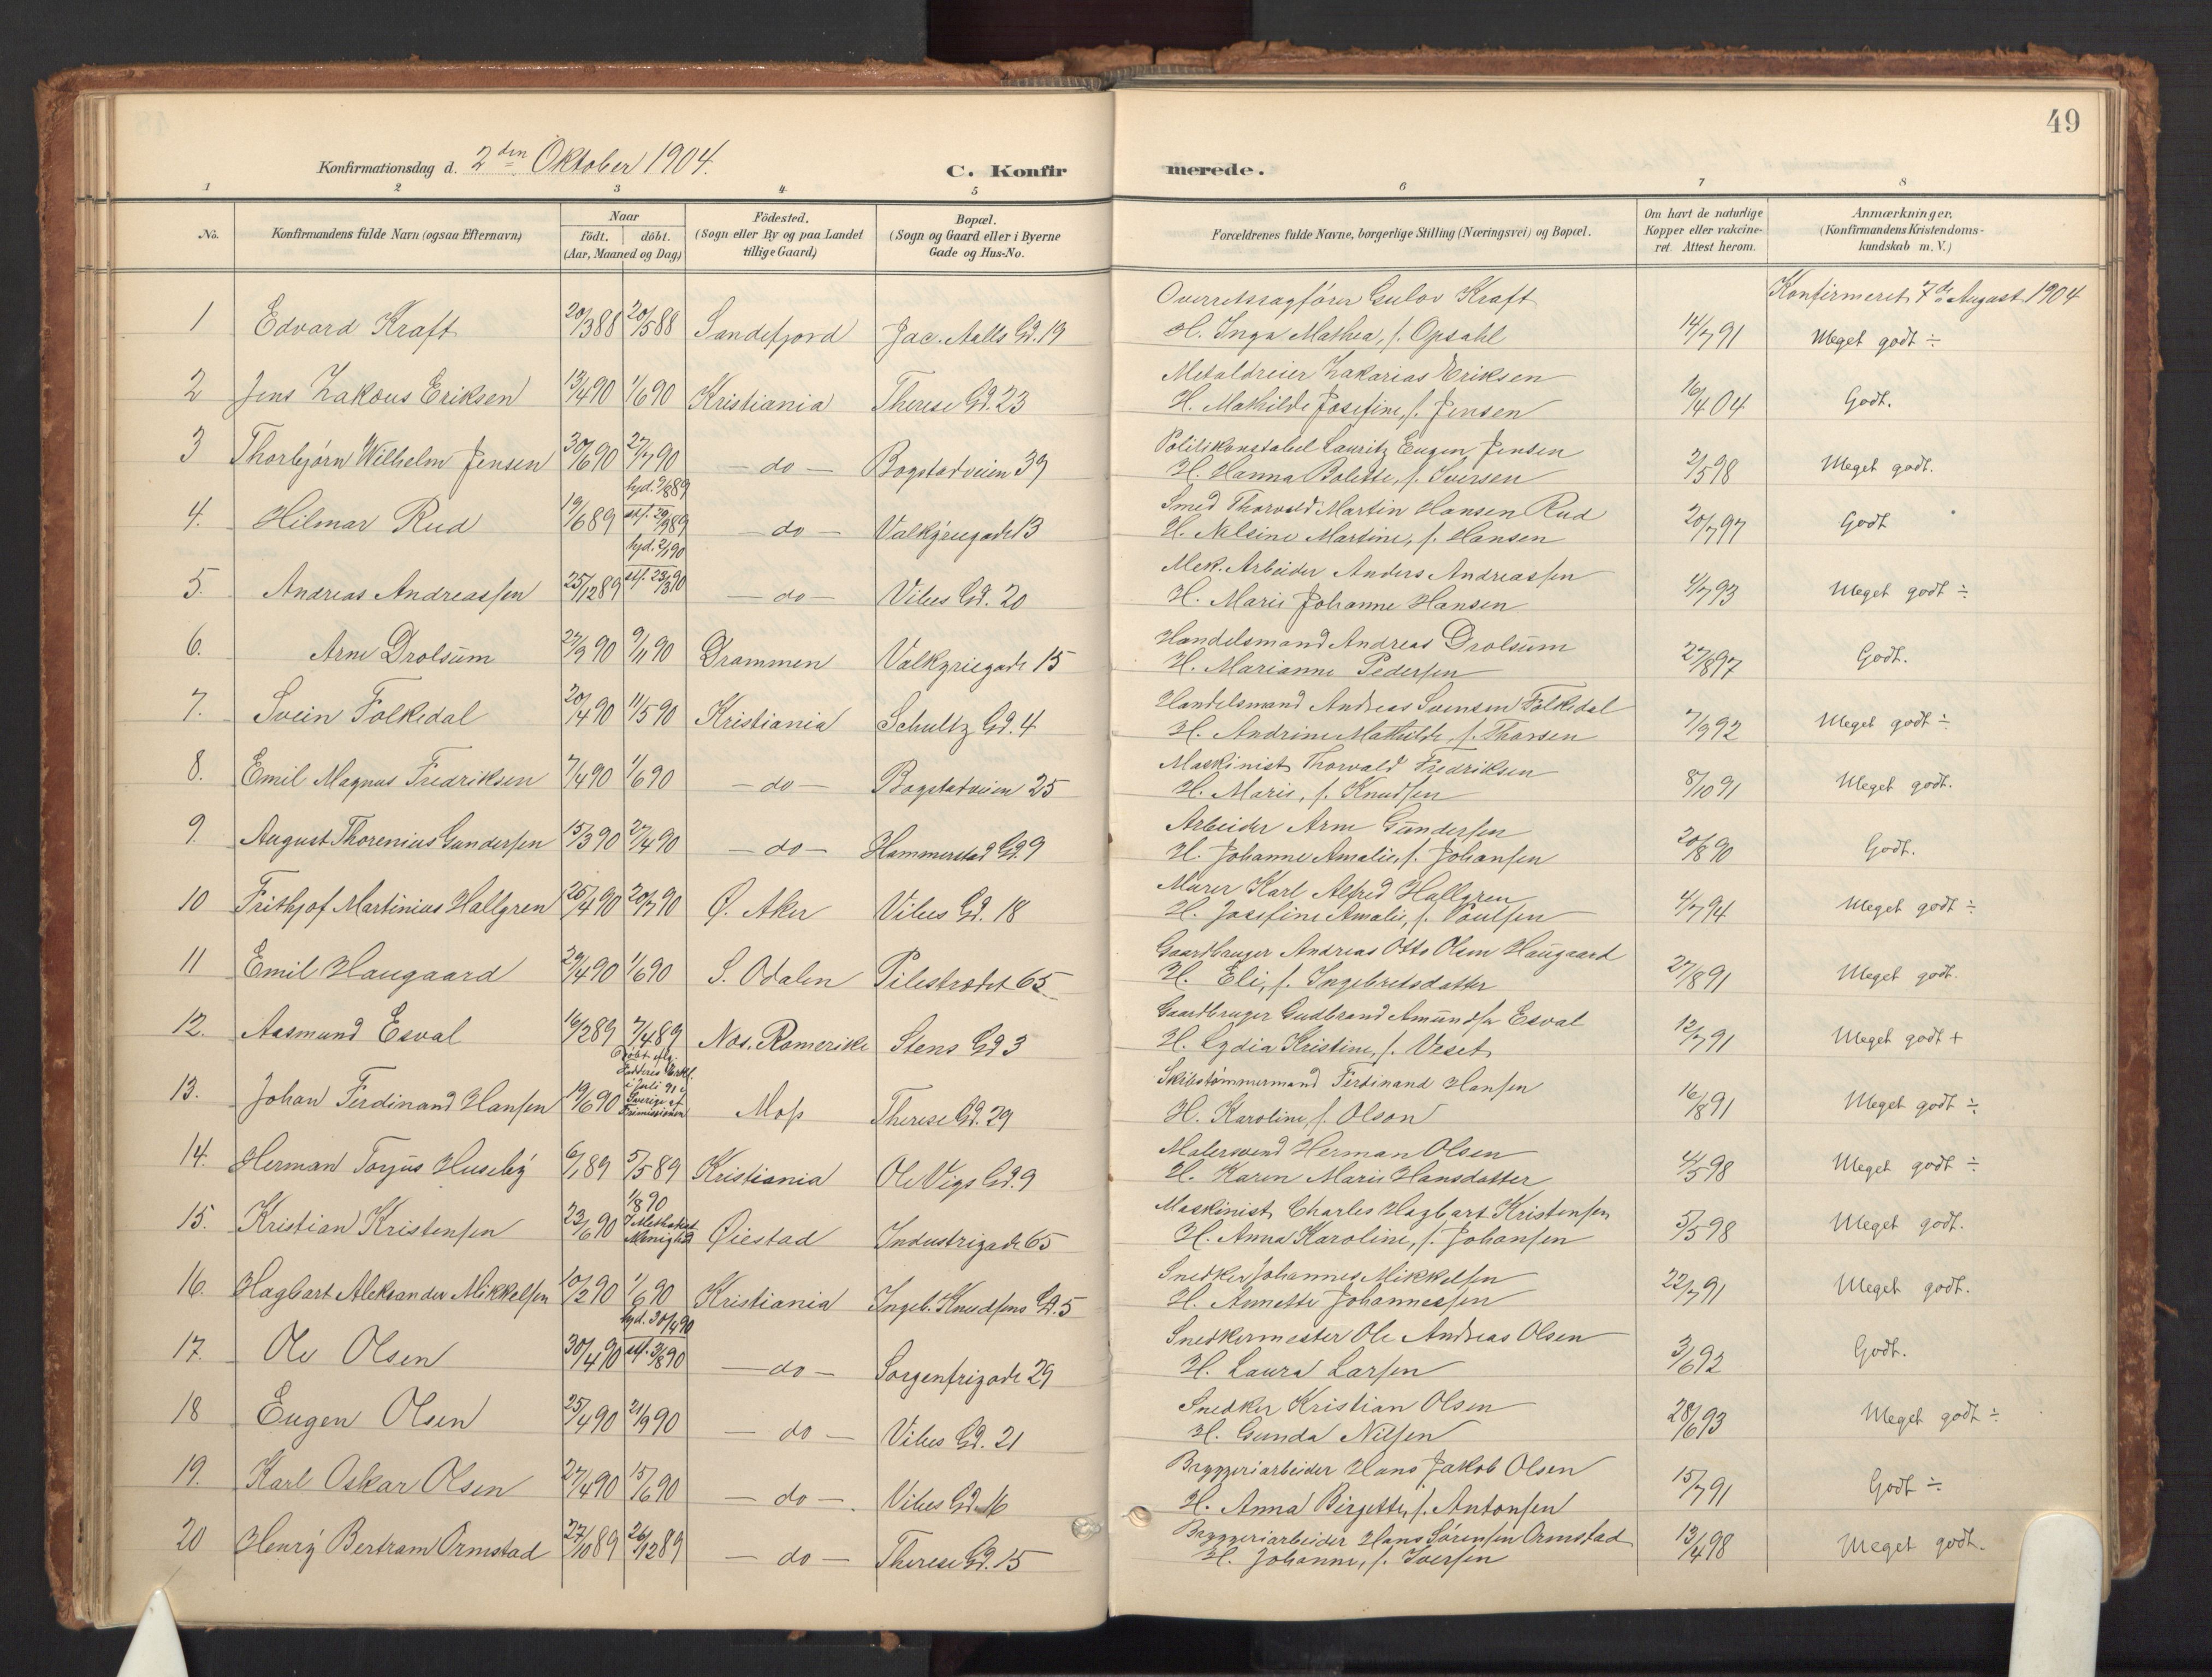 49
Konfirmationsdag d. 2den Oktober 1904.
C. Konfirmerede.
1 2 3 4 5 6 7 8
No.
Konfirmandens fulde Navn (ogsaa Efternavn)
Naar
födt. döbt.
(Aar, Maaned og Dag)
Födested.
(Sogn eller By og paa Landet
tillige Gaard)
Bopæl.
(Sogn og Gaard eller i Byerne
Gade og Hus-No.
Forældrenes fulde Navne, borgerlige Stilling (Næringsvei) og Bopæl.
Om havt de naturlige
Kopper eller vakcine-
ret. Attest herom.
Anmærkninger,
(Konfirmandens Kristendoms-
kundskab m. V.)
Konfirmeret 7de August 1904
1 Edvard Kraft 20/3 88 20/5 88 Sandefjord Jac. Aalls Gd. 19 Overretssagfører Gulov Kraft
H. Inga Mathea, f. Opsahl 14/7 91 Meget godt ÷
2 Jens Zakæus Eriksen 13/4 90 1/6 90 Kristiania Therese Gd. 23 Metaldreier Zakarias Eriksen
H. Mathilde Josefine, f. Jensen 16/4 04 Godt.
3 Thorbjørn Wilhelm Jensen 30/6 90 27/7 90 — do — Bogstadveien 39 Politikonstabel Lauritz Eugen Jensen
H. Hanna Bolette, f. Iversen 2/5 98 Meget godt.
4. Hilmar Rud 19/6 89 hjd. 9/8 89
stf. 29/9 89 — do — Valkyriegade 13 Smed Thorvald Martin Hansen Rud
H. Nelsine Martine, f. Hansen 20/7 97 Godt
5. Andreas Andreassen 25/12 89 hjd. 2/1 90
stf. 23/3 90 — do — Vibes Gd. 20 Mek. Arbeider Anders Andreassen
H. Marie Johanne Hansen 4/7 93 Meget godt ÷
6. Arne Drolsum 27/9 90 9/11 90 Drammen Valkyriegade 15 Handelsmand Andreas Drolsum
H. Marianne Pedersen 27/8 97 Godt.
7. Svein Folkedal 20/4 90 11/5 90 Kristiania Schultz Gd. 4 Handelsmand Andreas Svensen Folkedal
H. Andrine Mathilde, f. Thorsen 7/9 92 Meget godt ÷
8. Emil Magnus Fredriksen 7/4 90 1/6 90 — do — Bogstadveien 25 Maskinist Thorvald Fredriksen
H. Marie, f. Knudsen 8/10 91 Meget godt.
9. August Thorenius Gundersen 15/3 90 27/4 90 — do — Hammerstad Gd. 9 Arbeider Arne Gundersen
H. Johanne Amalie, f. Johansen 20/8 90 Godt.
10 Frithjof Martinius Hallgren 25/4 90 20/7 90 Ø. Aker Vibes Gd. 18 Murer Karl Alfred Hallgren
H. Josefine Amalie, f. Poulsen 4/7 94 Meget godt ÷
11 Emil Haugaard 29/4 90 1/6 90 S. Odalen Pilestrædet 65 Gaardbruger Andreas Otto Olsen Haugaard
H. Eli, f. Ingebretsdatter 27/8 91 Meget godt.
12. Aasmund Esval 16/2 89 7/4 89 Nes. Romerike Stens Gd 3 Gaardbruger Gudbrand Amundsen Esval
H. Lydia Kristine, f. Veset 12/7 91 Meget godt +
13. Johan Ferdinand Hansen 19/6 90 Døbt iflg.
Fadderes Erkl.
i Juli 91 i
Sverige af
Frimissionen Moss Therese Gd. 29 Skibstømmermand Ferdinand Hansen
H. Karoline, f. Olson 16/8 91 Meget godt ÷
14. Herman Torjus Huseby 6/1 89 5/5 89 Kristiania Ole Vigs Gd. 9 Malersvend Herman Olsen
H. Karen Marie Hansdatter 4/5 98 Meget godt ÷
15. Kristian Kristensen 23/6 90 1/8 90
I Methodist
Menighed Øiestad Industrigade 65 Maskinist Charles Hagbart Kristensen
H. Anna Karoline, f. Johansen 5/5 98 Meget godt.
16. Hagbart Aleksander Mikkelsen 10/2 90 1/6 90 Kristiania Ingeb. Knudsens Gd. 5 Snedker Johannes Mikkelsen
H. Annette Johannessen 22/7 91 Meget godt.
17. Ole Olsen 30/4 90 hjd. 30/4 90
stf. 3/8 90 — do — Sorgenfrigade 29 Snedkermester Ole Andreas Olsen
H. Laura Larsen 3/6 92 Godt.
18 Eugen Olsen 25/4 90 21/9 90 — do — Vibes Gd. 21 Snedker Kristian Olsen
H. Gunda Nilsen 28/6 93 Meget godt ÷
19. Karl Oskar Olsen 27/4 90 15/6 90 — do — Vibes Gd. 16 Bryggeriarbeider Hans Jakob Olsen
H. Anna Birgette, f. Antonsen 15/7 91 Godt ÷
20 Henry Bertram Ormstad 27/10 89 26/12 89 — do — Therese Gd. 15 Bryggeriarbeider Hans Sørensen Ormstad
H. Johanne, f. Iversen 13/4 98 Meget godt.